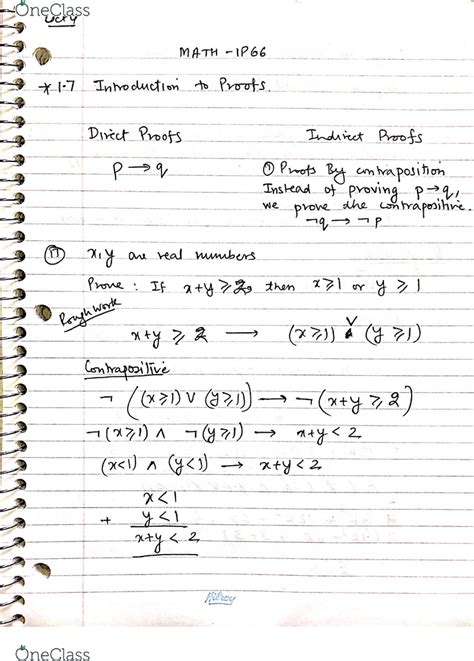 OneClass
MATH - 1P66
* 1.7 Introduction to Proofs.
Direct Proofs Indirect Proofs
p → q ① Proofs By contraposition
Instead of proving p→q,
we prove the contrapositive.
¬q → ¬p
⑰ x, y are real numbers
Prove : If x+y ≥ 2, then x ≥ 1 or y ≥ 1
Rough Work
x+y ≥ 2 → (x ≥ 1) ∨ (y ≥ 1)
Contrapositive
¬ ((x ≥ 1) ∨ (y ≥ 1)) → ¬ (x+y ≥ 2)
¬ (x ≥ 1) ∧ ¬ (y ≥ 1) → x+y < 2
(x < 1) ∧ (y < 1) → x+y < 2
x < 1
+ y < 1
x+y < 2
Hilroy
OneClass